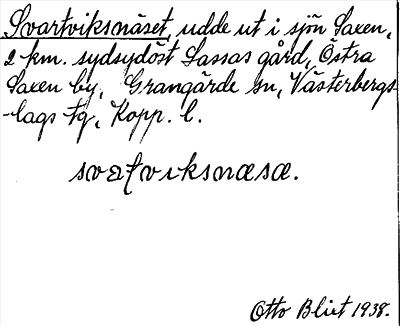 Svartviksnäset, udde ut i sjön Saxen,
2 km. sydsydöst Lassas gård, Östra
Saxen by, Grangärde sn, Västerbergs
-lags fg, Kopp. l.
svatviksnæsæ.
Otto Blixt 1938.